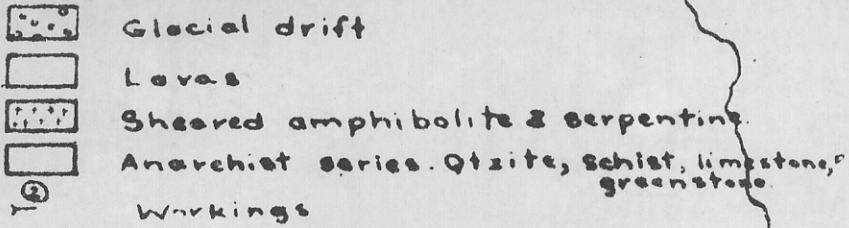 Glacial drift
Lavas
Sheared amphibolite & serpentine.
Anarchist series. Qtzite, schist, limestone,
greenstone.
②
Workings